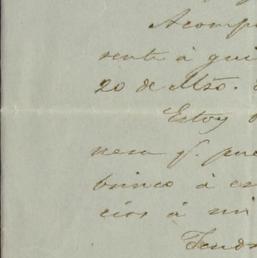 Acomp
sente á qui
20 de Mzo.
Estoy
nera q. pue
brinco á es
cios á mi
Tendr